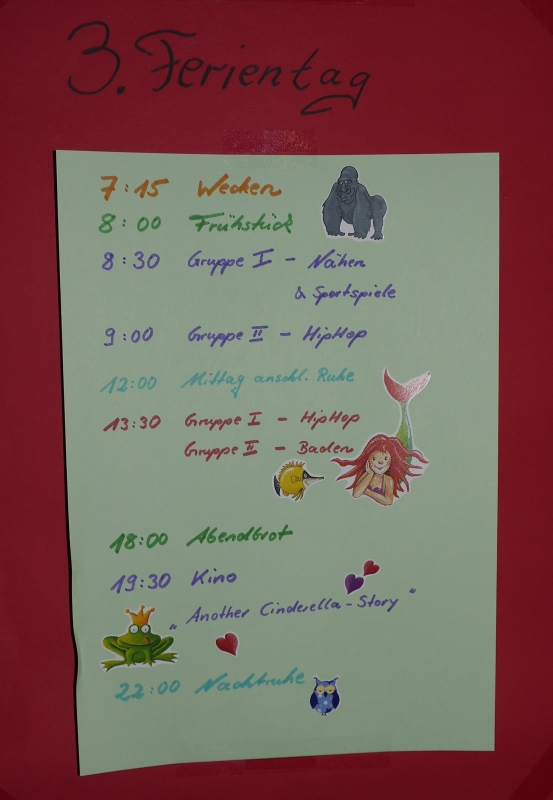 3. Ferientag
7:15 Wecken
8:00 Frühstück
8:30 Gruppe I - Nähen
& Sportspiele
9:00 Gruppe II - HipHop
12:00 Mittag anschl. Ruhe
13:30 Gruppe I - HipHop
Gruppe II - Baden
18:00 Abendbrot
19:30 Kino
„Another Cinderella-Story"
22:00 Nachtruhe